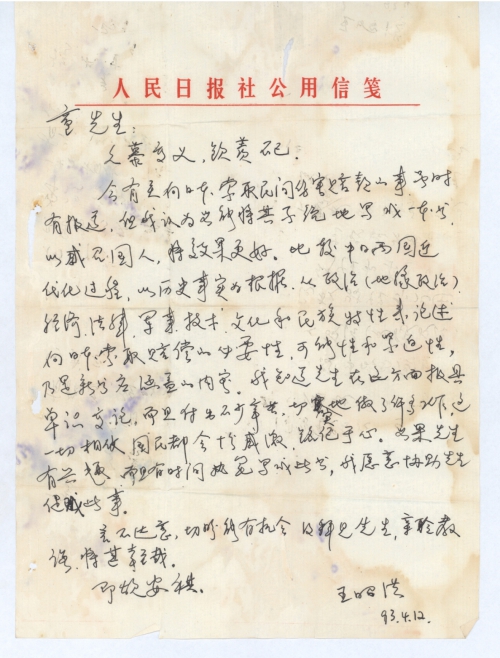 人民日报社公用信笺
童先生：
久慕高义，钦羡不已。
今有关向日本索取民间伤害赔款之事不时
有报道，但我认为若能将其系统地写成一本书，
以感召国人，将效果更好。比较中日两国近
代化过程，以历史事实为根据，从政治（地缘政治）、
经济、法律、军事技术、文化和民族特性来论述
向日本索取赔偿的必要性，可能性和紧迫性，
乃是新书应涵盖的内容。我知道先生在这方面极具
卓识高论，而且付出不少辛苦，切实地做了许多工作，这
一切相信国民都会珍感激铭记于心。如果先生
有兴趣，而且有时间执笔写成此书，我愿意协助先生
促成此事。
言不达意，切盼能有机会得拜见先生，亲聆教
诲，将甚幸哉。
即颂安祺。
王昭洪
93.4.12.